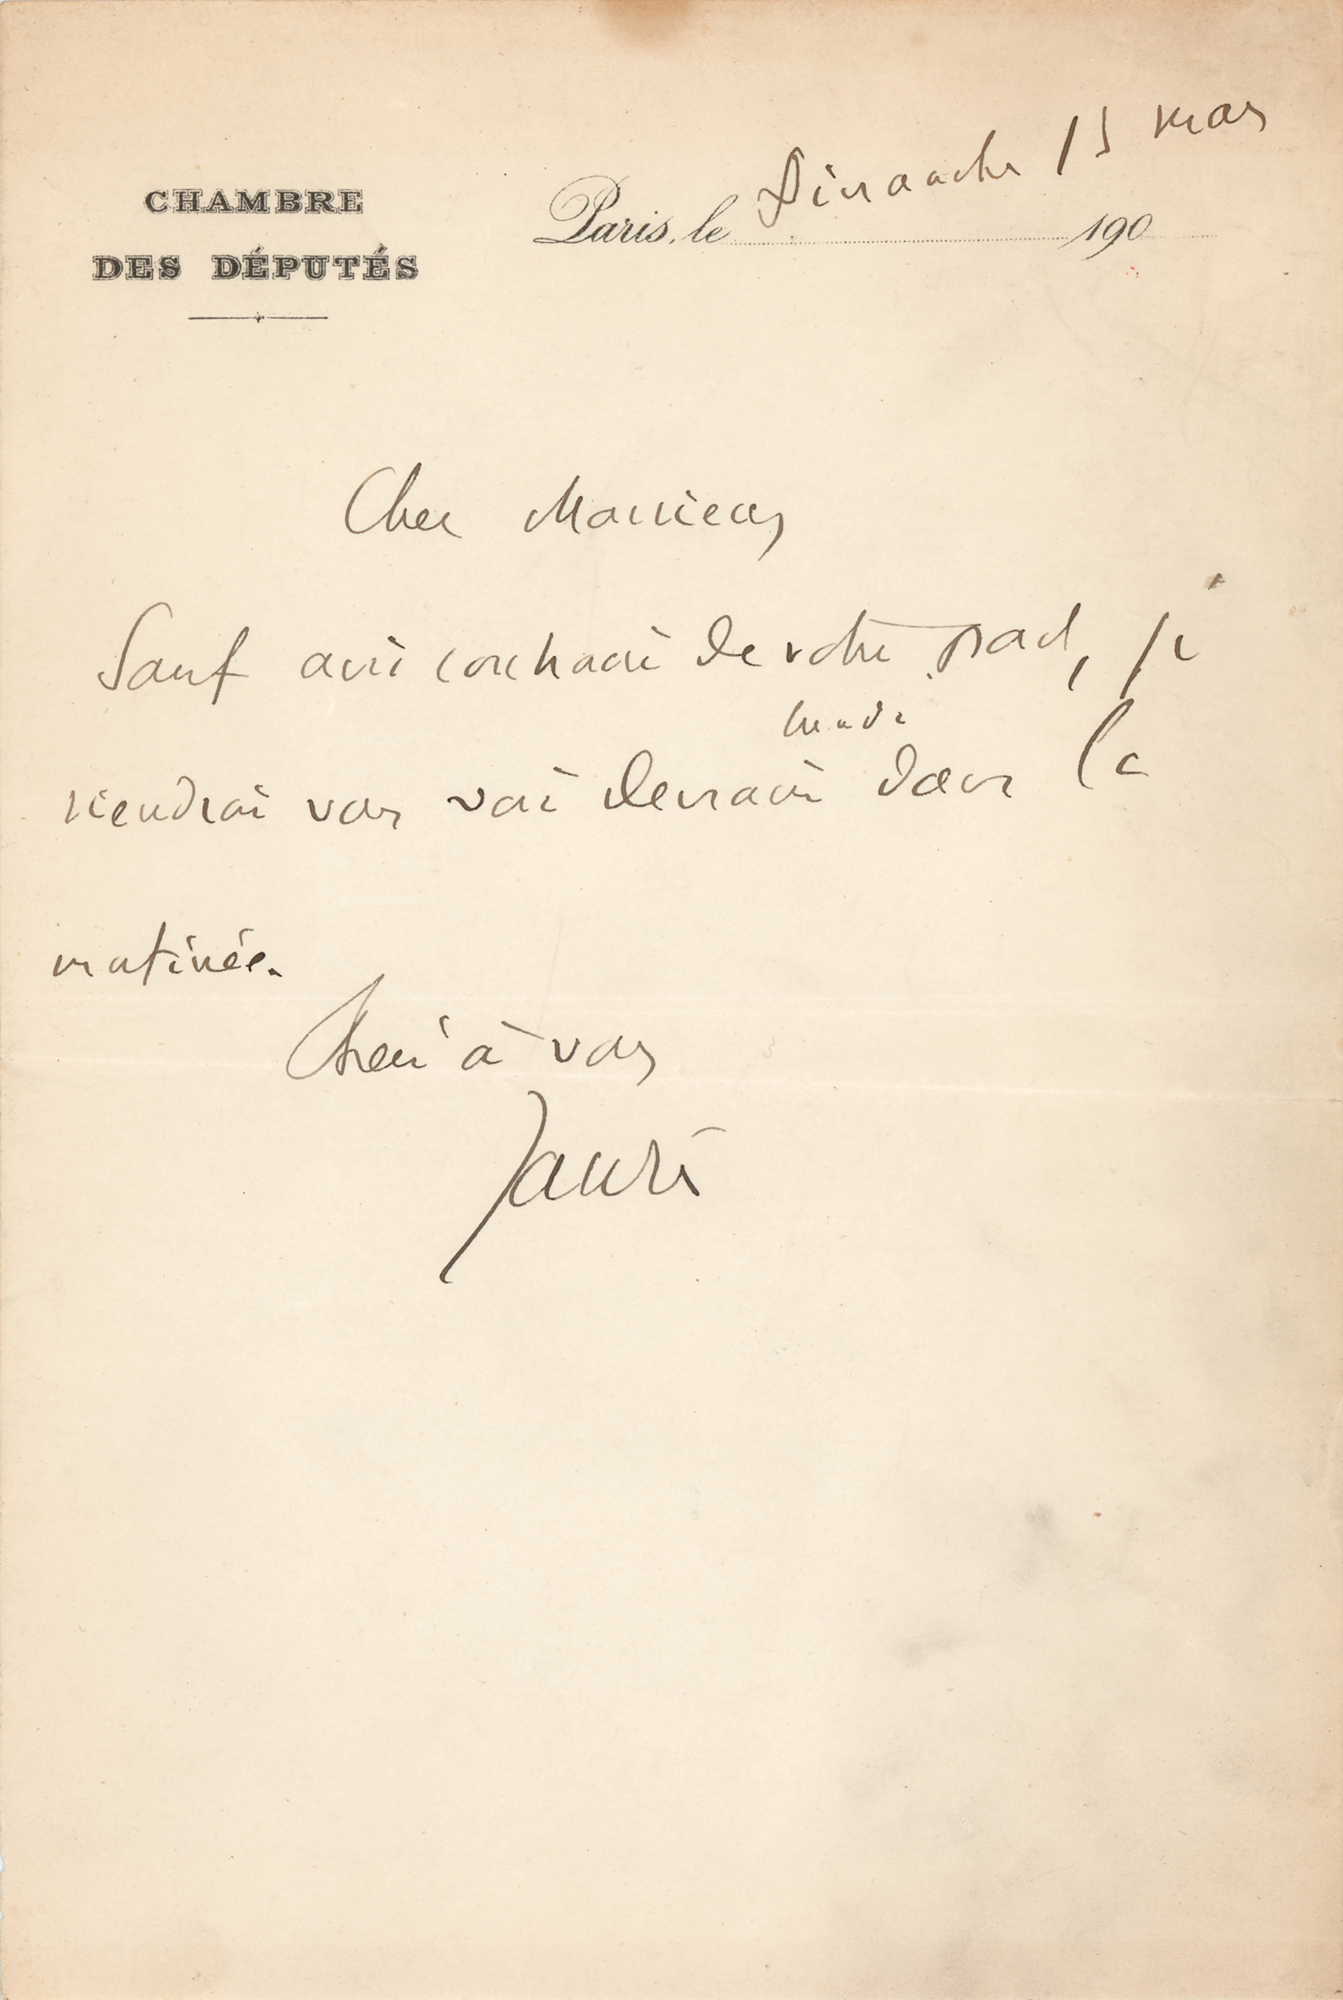 CHAMBRE
DES DÉPUTÉS
Paris, le Dimanche 15 mars 190
Cher Monsieur,
Sauf avis contraire de votre part, je
lundi
viendrai vous voir demain dans la
matinée.
à vous
Jaurès